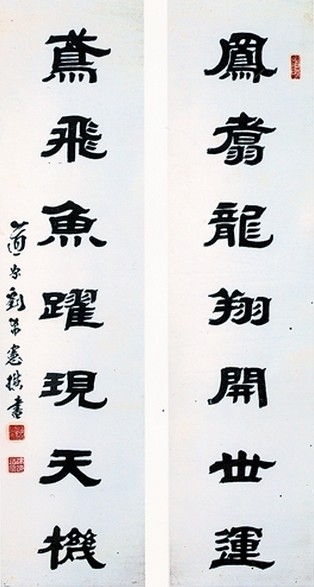 鳳翥龍翔開世運
鳶飛魚躍現天機
道安劉秉憲撰書